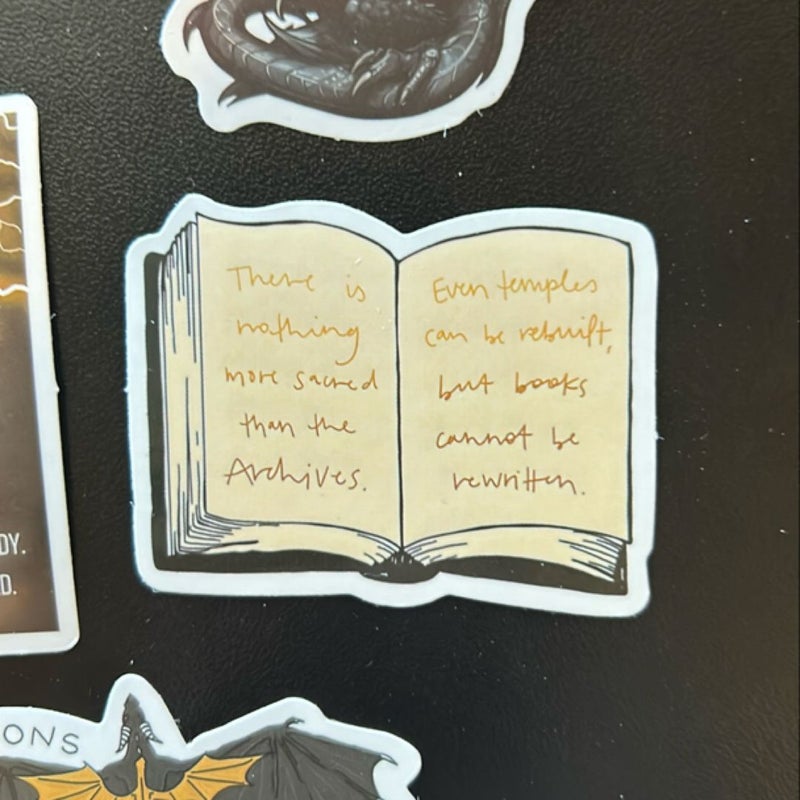 There is
nothing
more sacred
than the
Archives.
Even temples
can be rebuilt,
but books
cannot be
rewritten.
DY.
D.
ONS